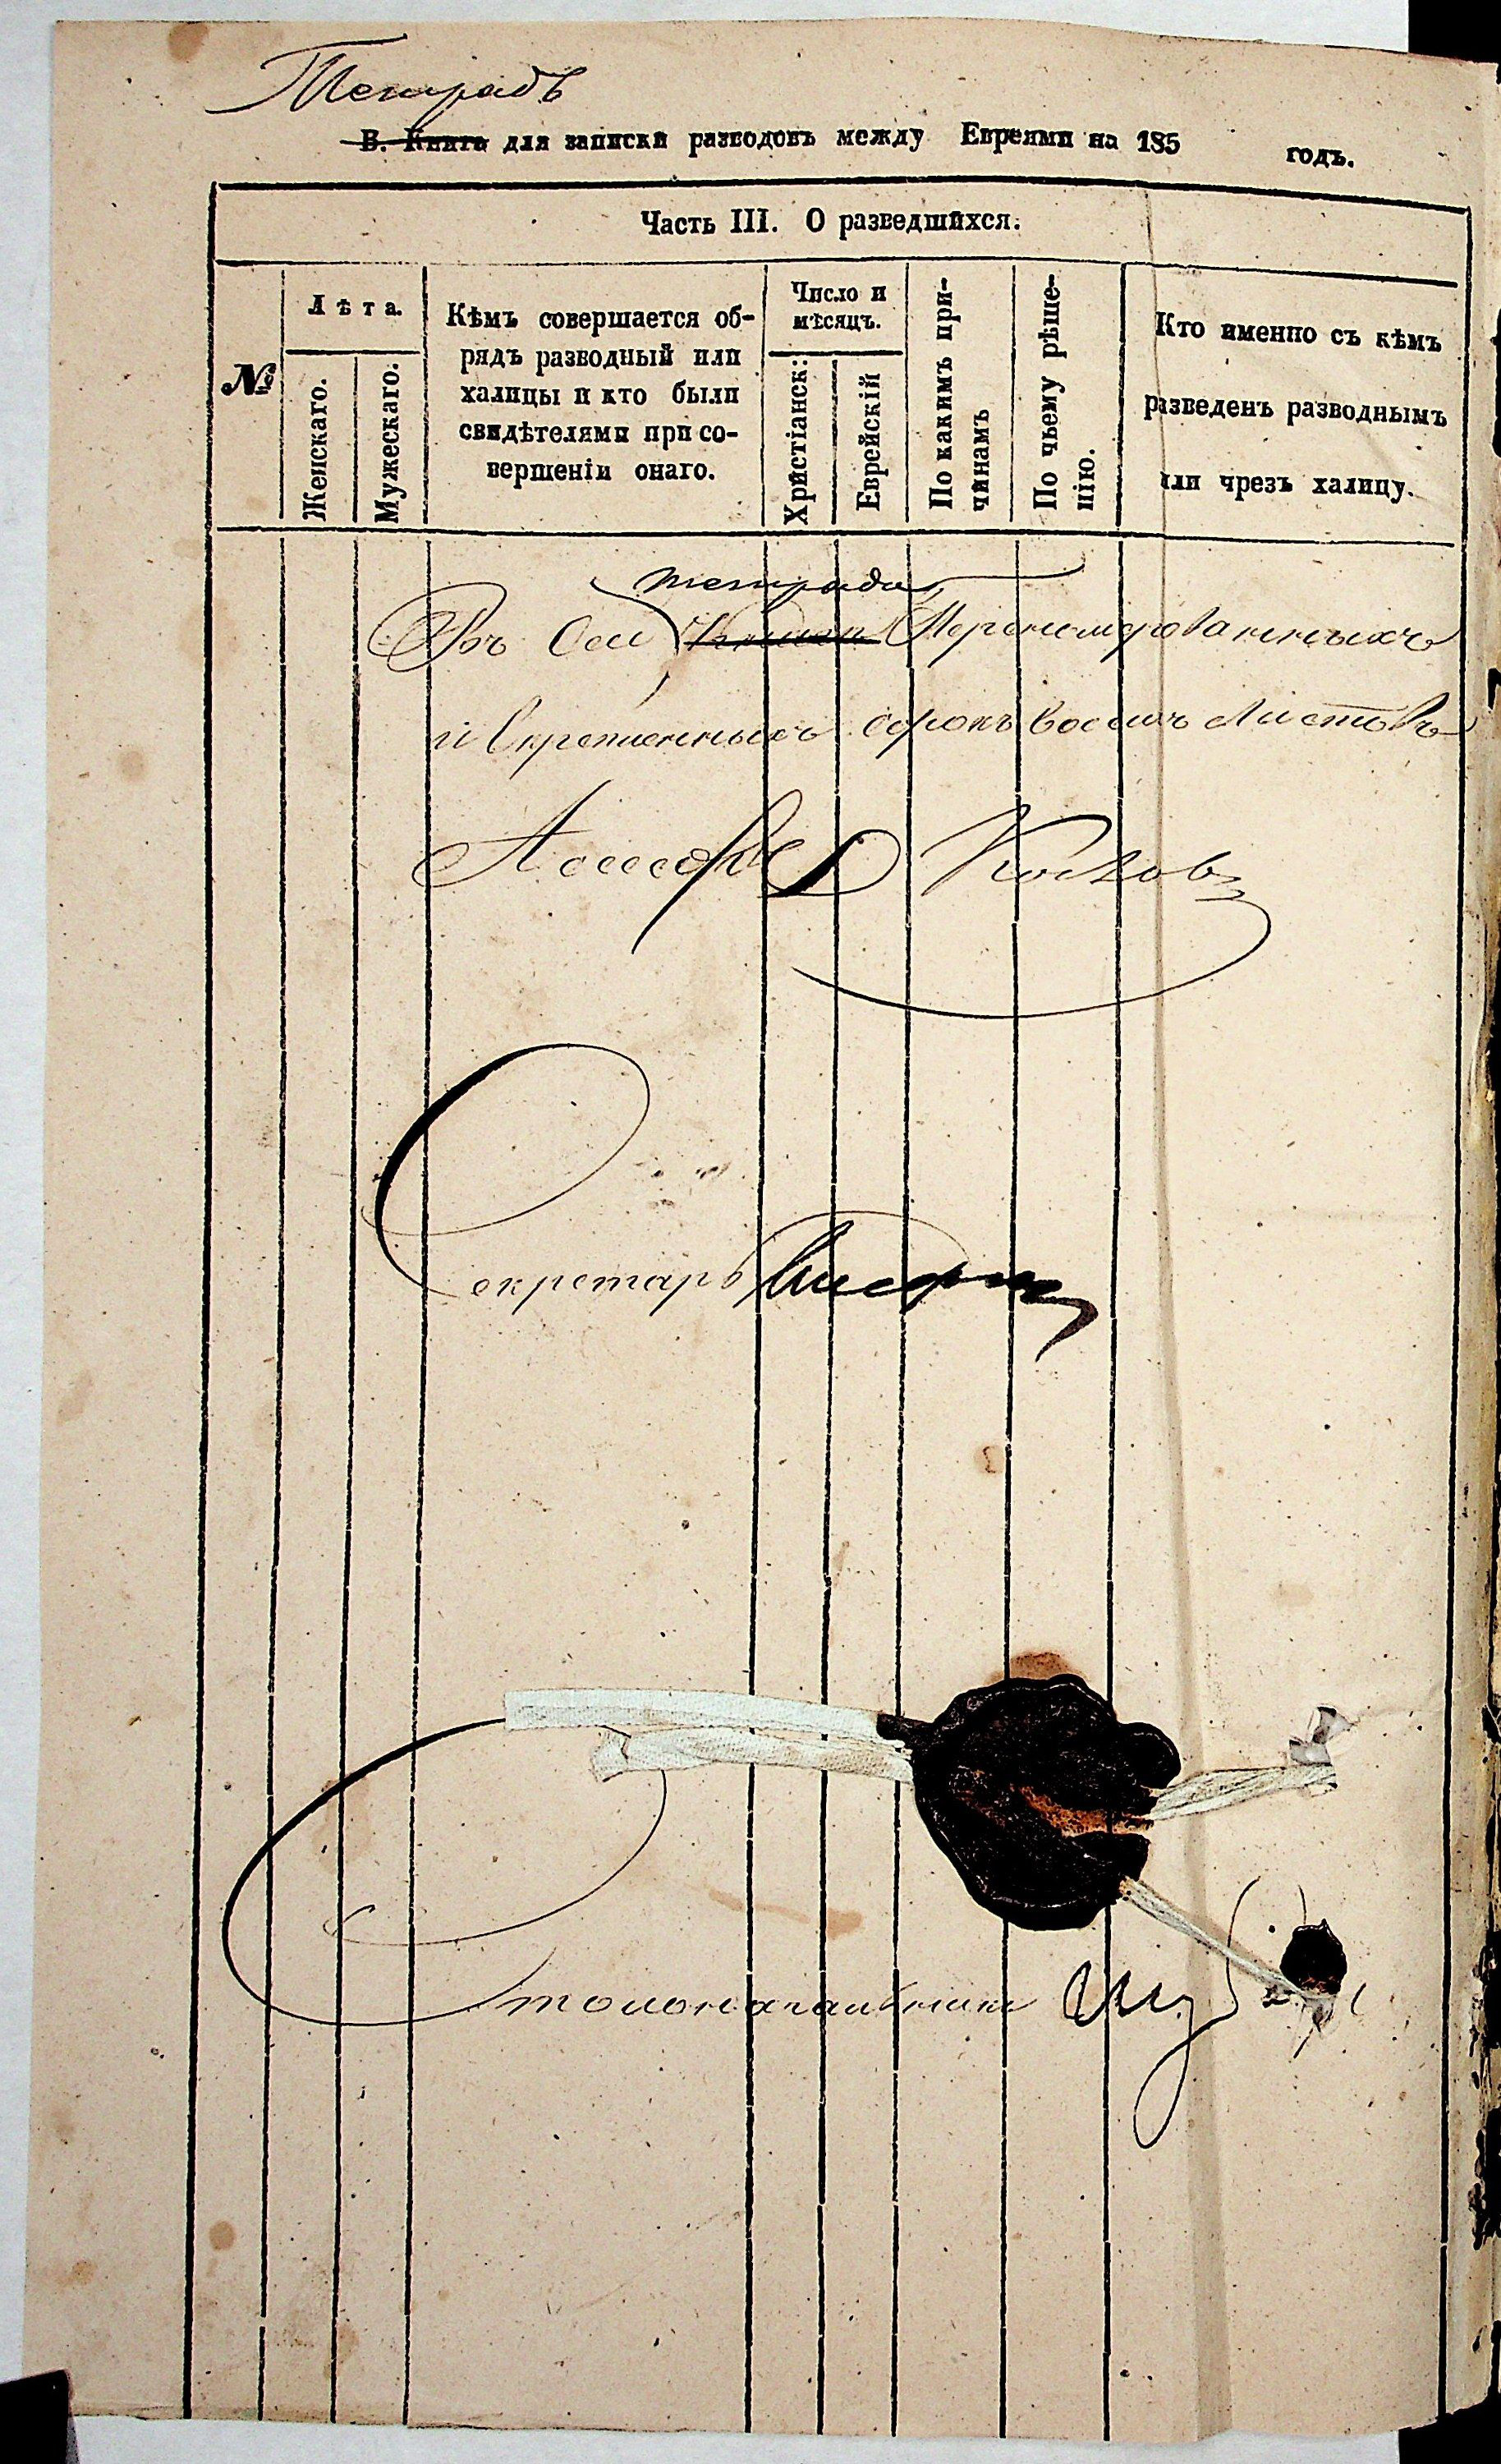 Тетрадь
В. Книга для записки разводовъ между Евреями на 185 годъ.
Часть III. О разведшихся.
№
Лѣта.
Женскаго.
Мужескаго.
Кѣмъ совершается об-
рядъ разводный или
халицы и кто были
свидѣтелями при со-
вершеніи онаго.
Число и
мѣсяцъ.
Христіанск:
Еврейскій
По какимъ при-
чинамъ
По чьему рѣше-
нію.
Кто именно съ кѣмъ
разведенъ разводнымъ
или чрезъ халицу.
тетради
Въ сей книги Перенумерованныхъ
и скрепленныхъ сорокъ восемь листовъ
Асесоръ Козлов
Секретарь
Столоначальникъ